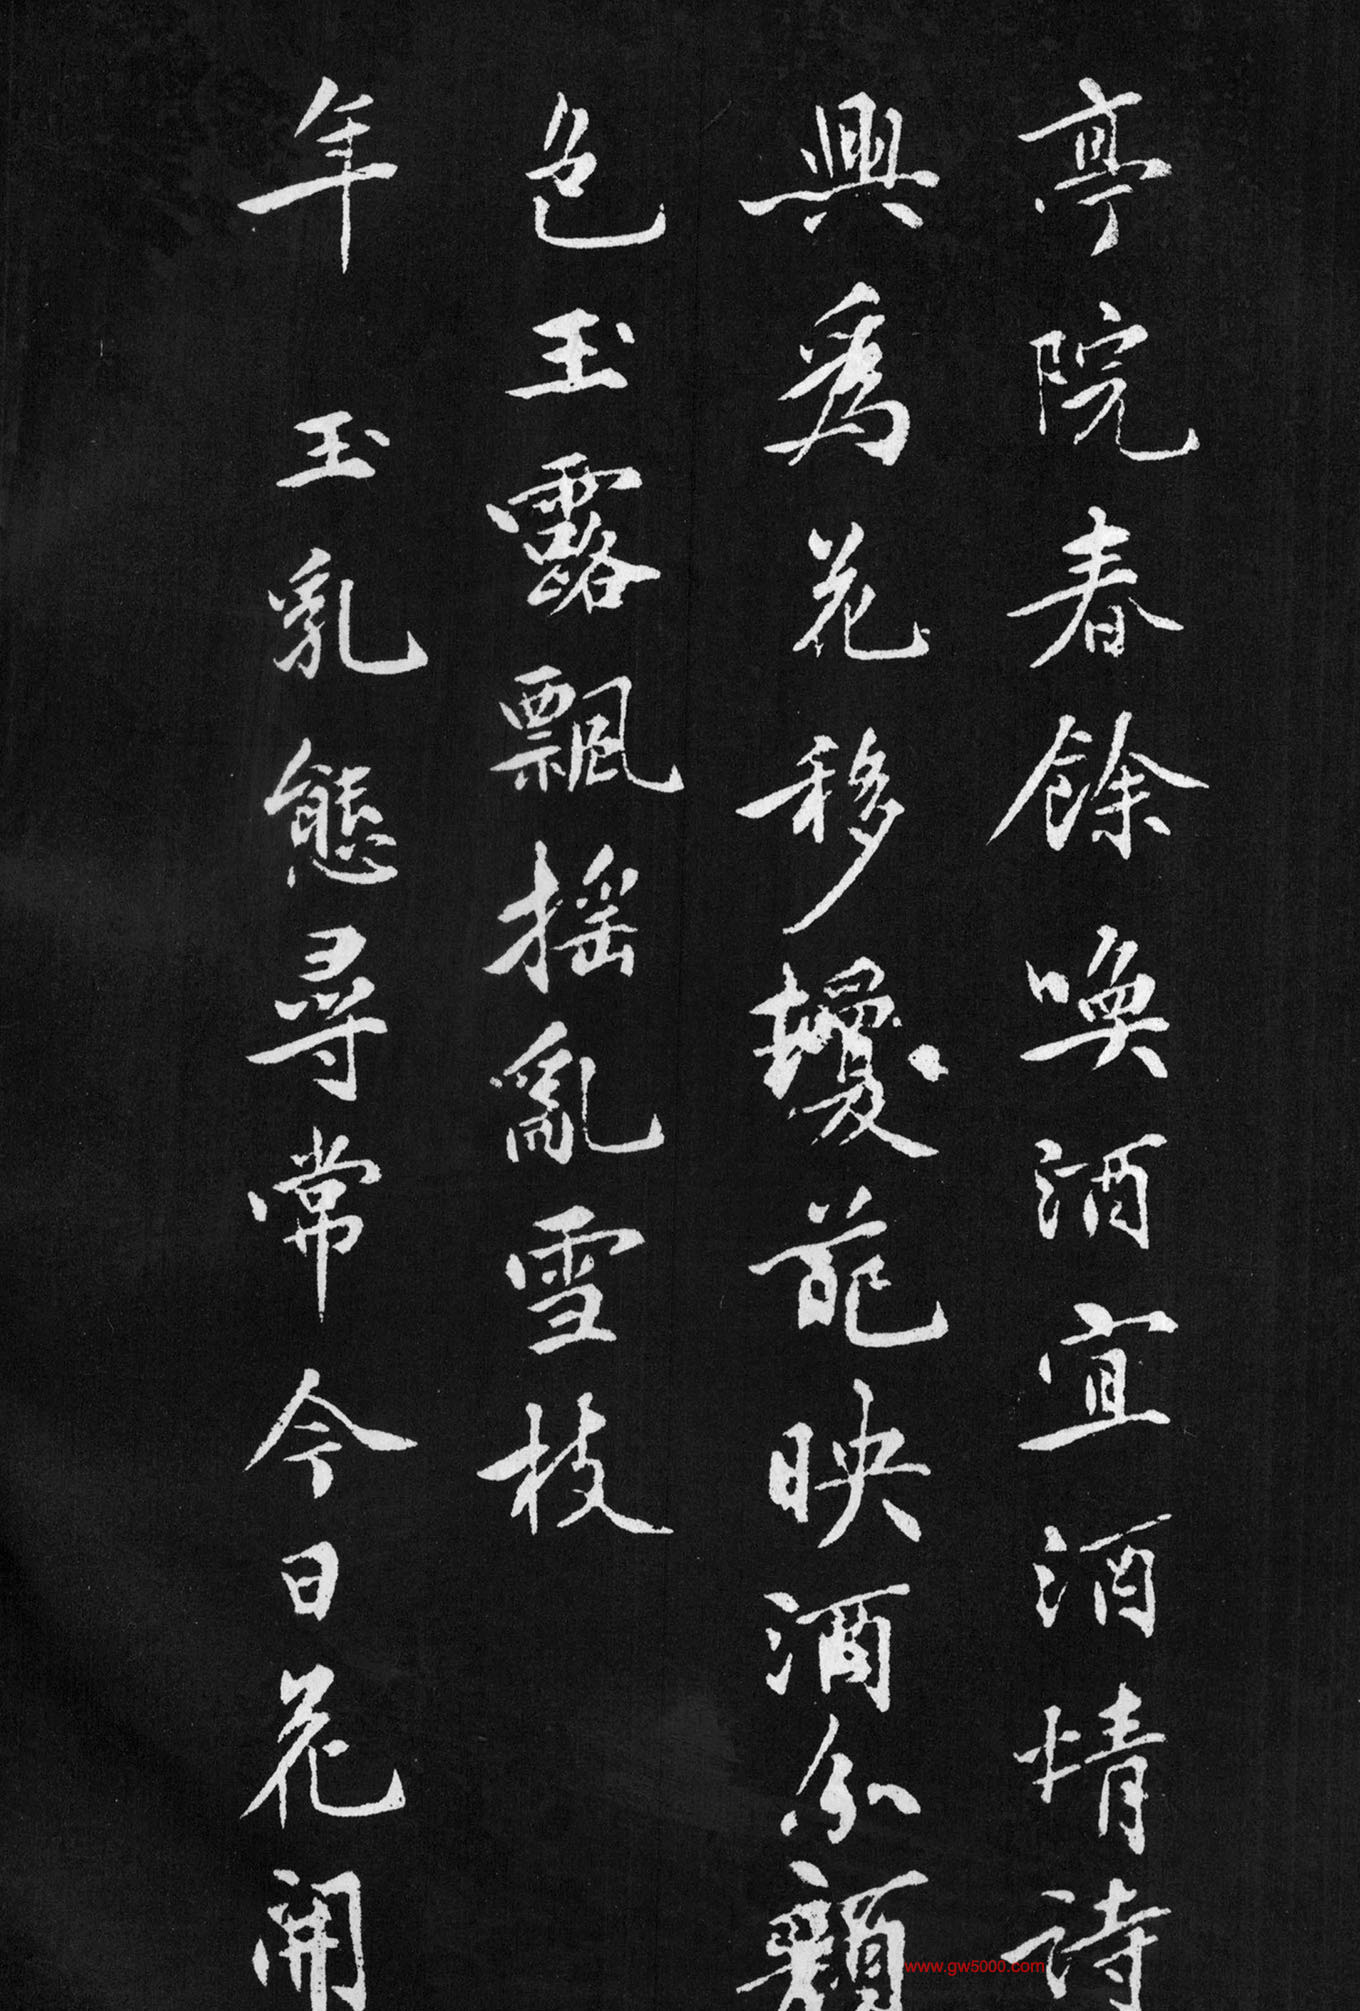 亭院春餘喚酒宜酒情詩
興爲花移葩映酒分顏
色玉露飄搖亂雪枝
年玉乳態尋常今日花開
www.gw5000.com